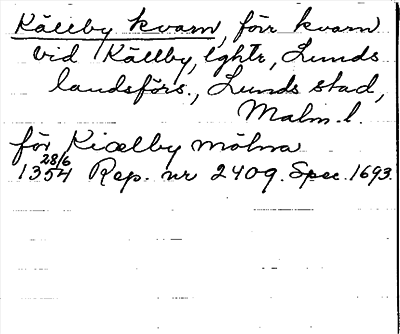 Källby kvarn, förr kvarn
vid Källby, lghtr, Lunds
landsförs., Lunds stad,
Malm. l.
för Kiælby mölna
28/6
1354 Rep. nr 2409. Spec. 1693.